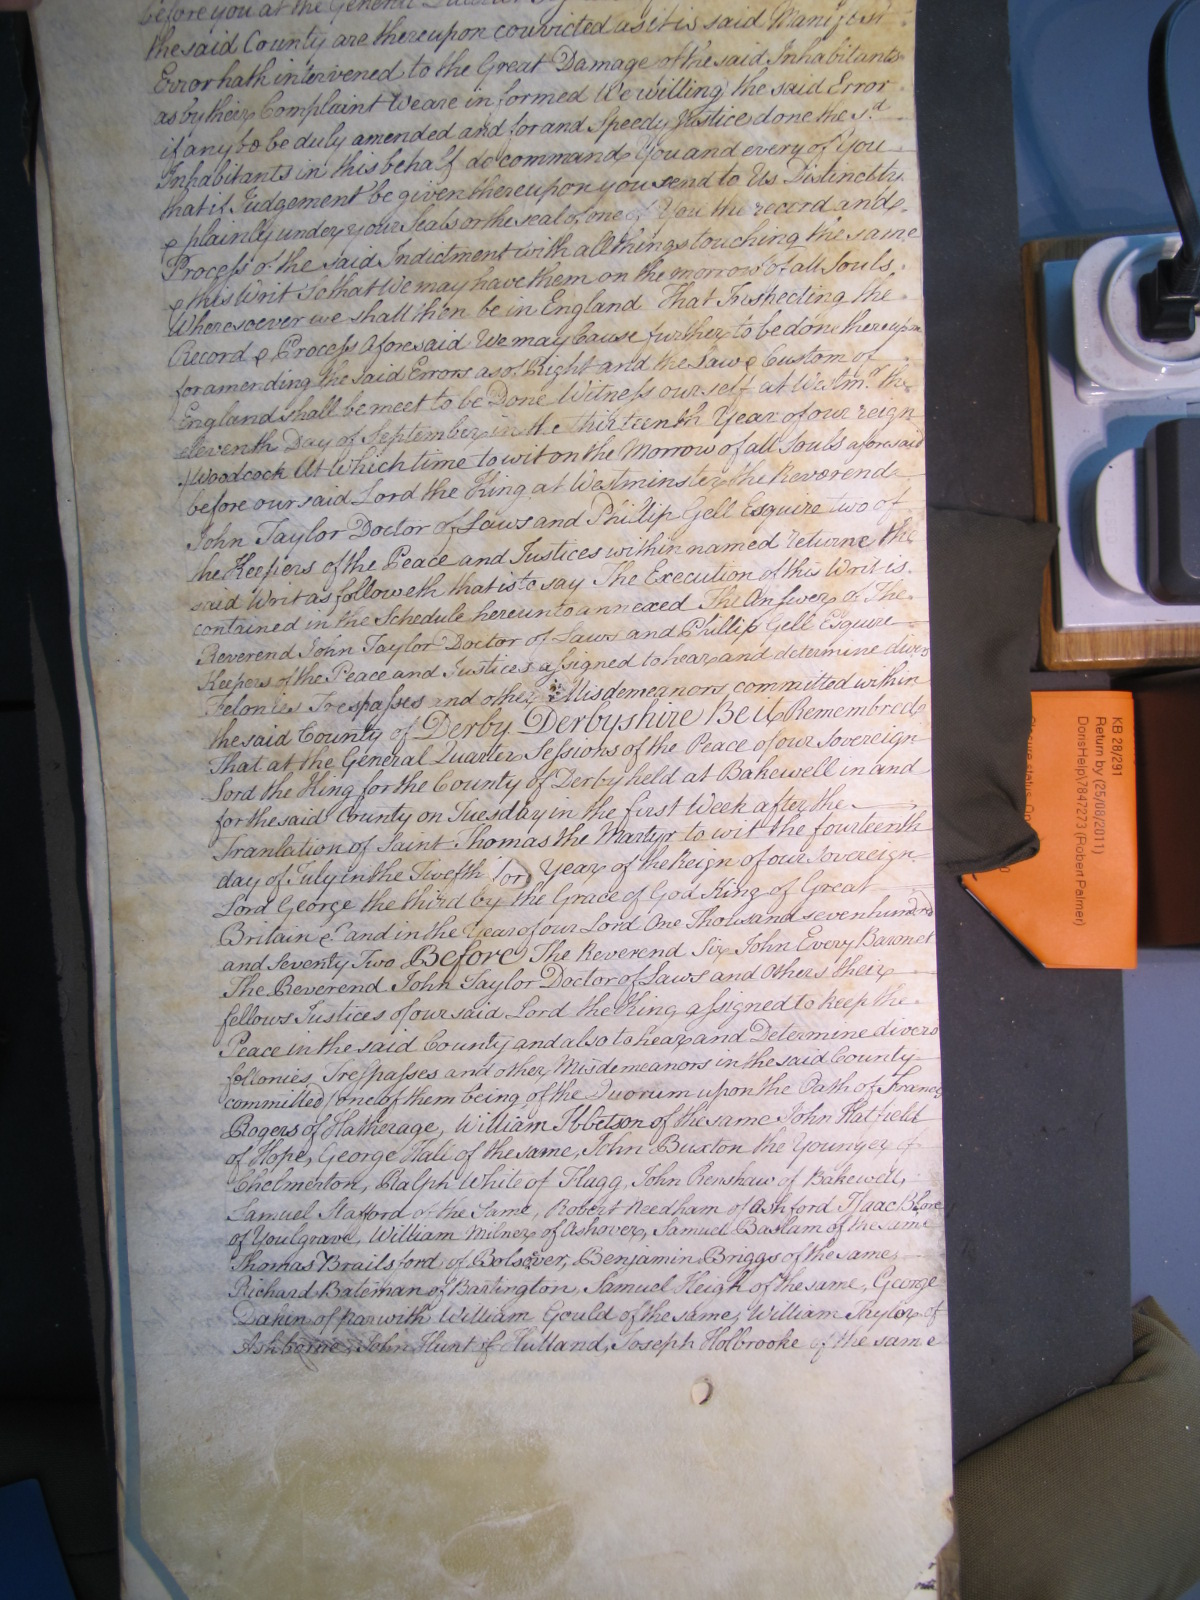 before you at the General Quarter
the said County are thereupon convicted as it is said Manifest
Error hath intervened to the Great Damage of the said Inhabitants
as by their Complaint We are informed We willing the said Error
if any to be duly amended and for and Speedy Justice done the s.d
Inhabitants in this behalf do command You and every of You
that if Judgement be given thereupon you send to Us Distinctly
& plainly under your Seals or the seal of one of You the record and
Process of the said Indictment with all things touching the same
& this Writ so that We may have them on the morrow of all Souls,
Wheresoever we shall then be in England That Inspecting the
Record & Process Aforesaid We may Cause further to be done thereupon
for amending the said Errors as of Right and the Law & Custom of
England shall be meet to be Done Witness ourself at Westm.r the
eleventh Day of September in the Thirteenth Year of our reign
/Woodcock At Which time to wit on the Morrow of all Souls aforesaid
before our said Lord the King at Westminster the Reverend
John Taylor Doctor of Laws and Phillip Gell Esquire two of
the Keepers of the Peace and Justices within named returne the
said Writ as followeth that is to say The Execution of this Writ is
contained in the Schedule hereunto annexed The Answer of The
Reverend John Taylor Doctor of Laws and Phillip Gell Esquire
Keepers of the Peace and Justices assigned to hear and determine divers
Felonies Trespasses and other Misdemeanors committed within
the said County of Derby Derbyshire Be it Remembred
That at the General Quarter Sessions of the Peace of our Sovereign
Lord the King for the County of Derby held at Bakewell in and
for the said County on Tuesday in the first Week after the
Tranlation of Saint Thomas the Martyr to wit the fourteenth
day of July in the Twefth (or) Year of the Reign of our Sovereign
Lord George the third by the Grace of God King of Great
Britain &c and in the Year of our Lord One Thousand seven hundred
and seventy Two Before The Reverend Sir John Every Baronet
The Reverend John Taylor Doctor of Laws and others their
fellows Justices of our said Lord the King assigned to keep the
Peace in the said County and also to hear and Determine divers
fellonies, Trespasses and other Misdemeanors in the said County
committed/one of them being of the Quorum upon the Oath of Francis
Rogers of Hatherage, William Ibbetson of the same John Hatfield
of Hope, George Hall of the same, John Buxton the Younger of
Chelmerton, Ralph White of Flagg, John Renshaw of Bakewell,
Samuel Stafford of the Same, Robert Needham of Ashford Isaac Blore
of Youlgrave, William Milner of Ashover, Samuel Baslam of the same
Thomas Brailsford of Bolsover, Benjamin Briggs of the same,
Richard Bateman of Hartington, Samuel Heigh of the same, George
Dakin of parwith William Gould of the same, William Taylor of
Ashborne, John Hunt of Hulland, Joseph Holbrooke of the same
KB 28/291
Return by (25/08/2011)
DorisHelp\7847273 (Robert Palmer)